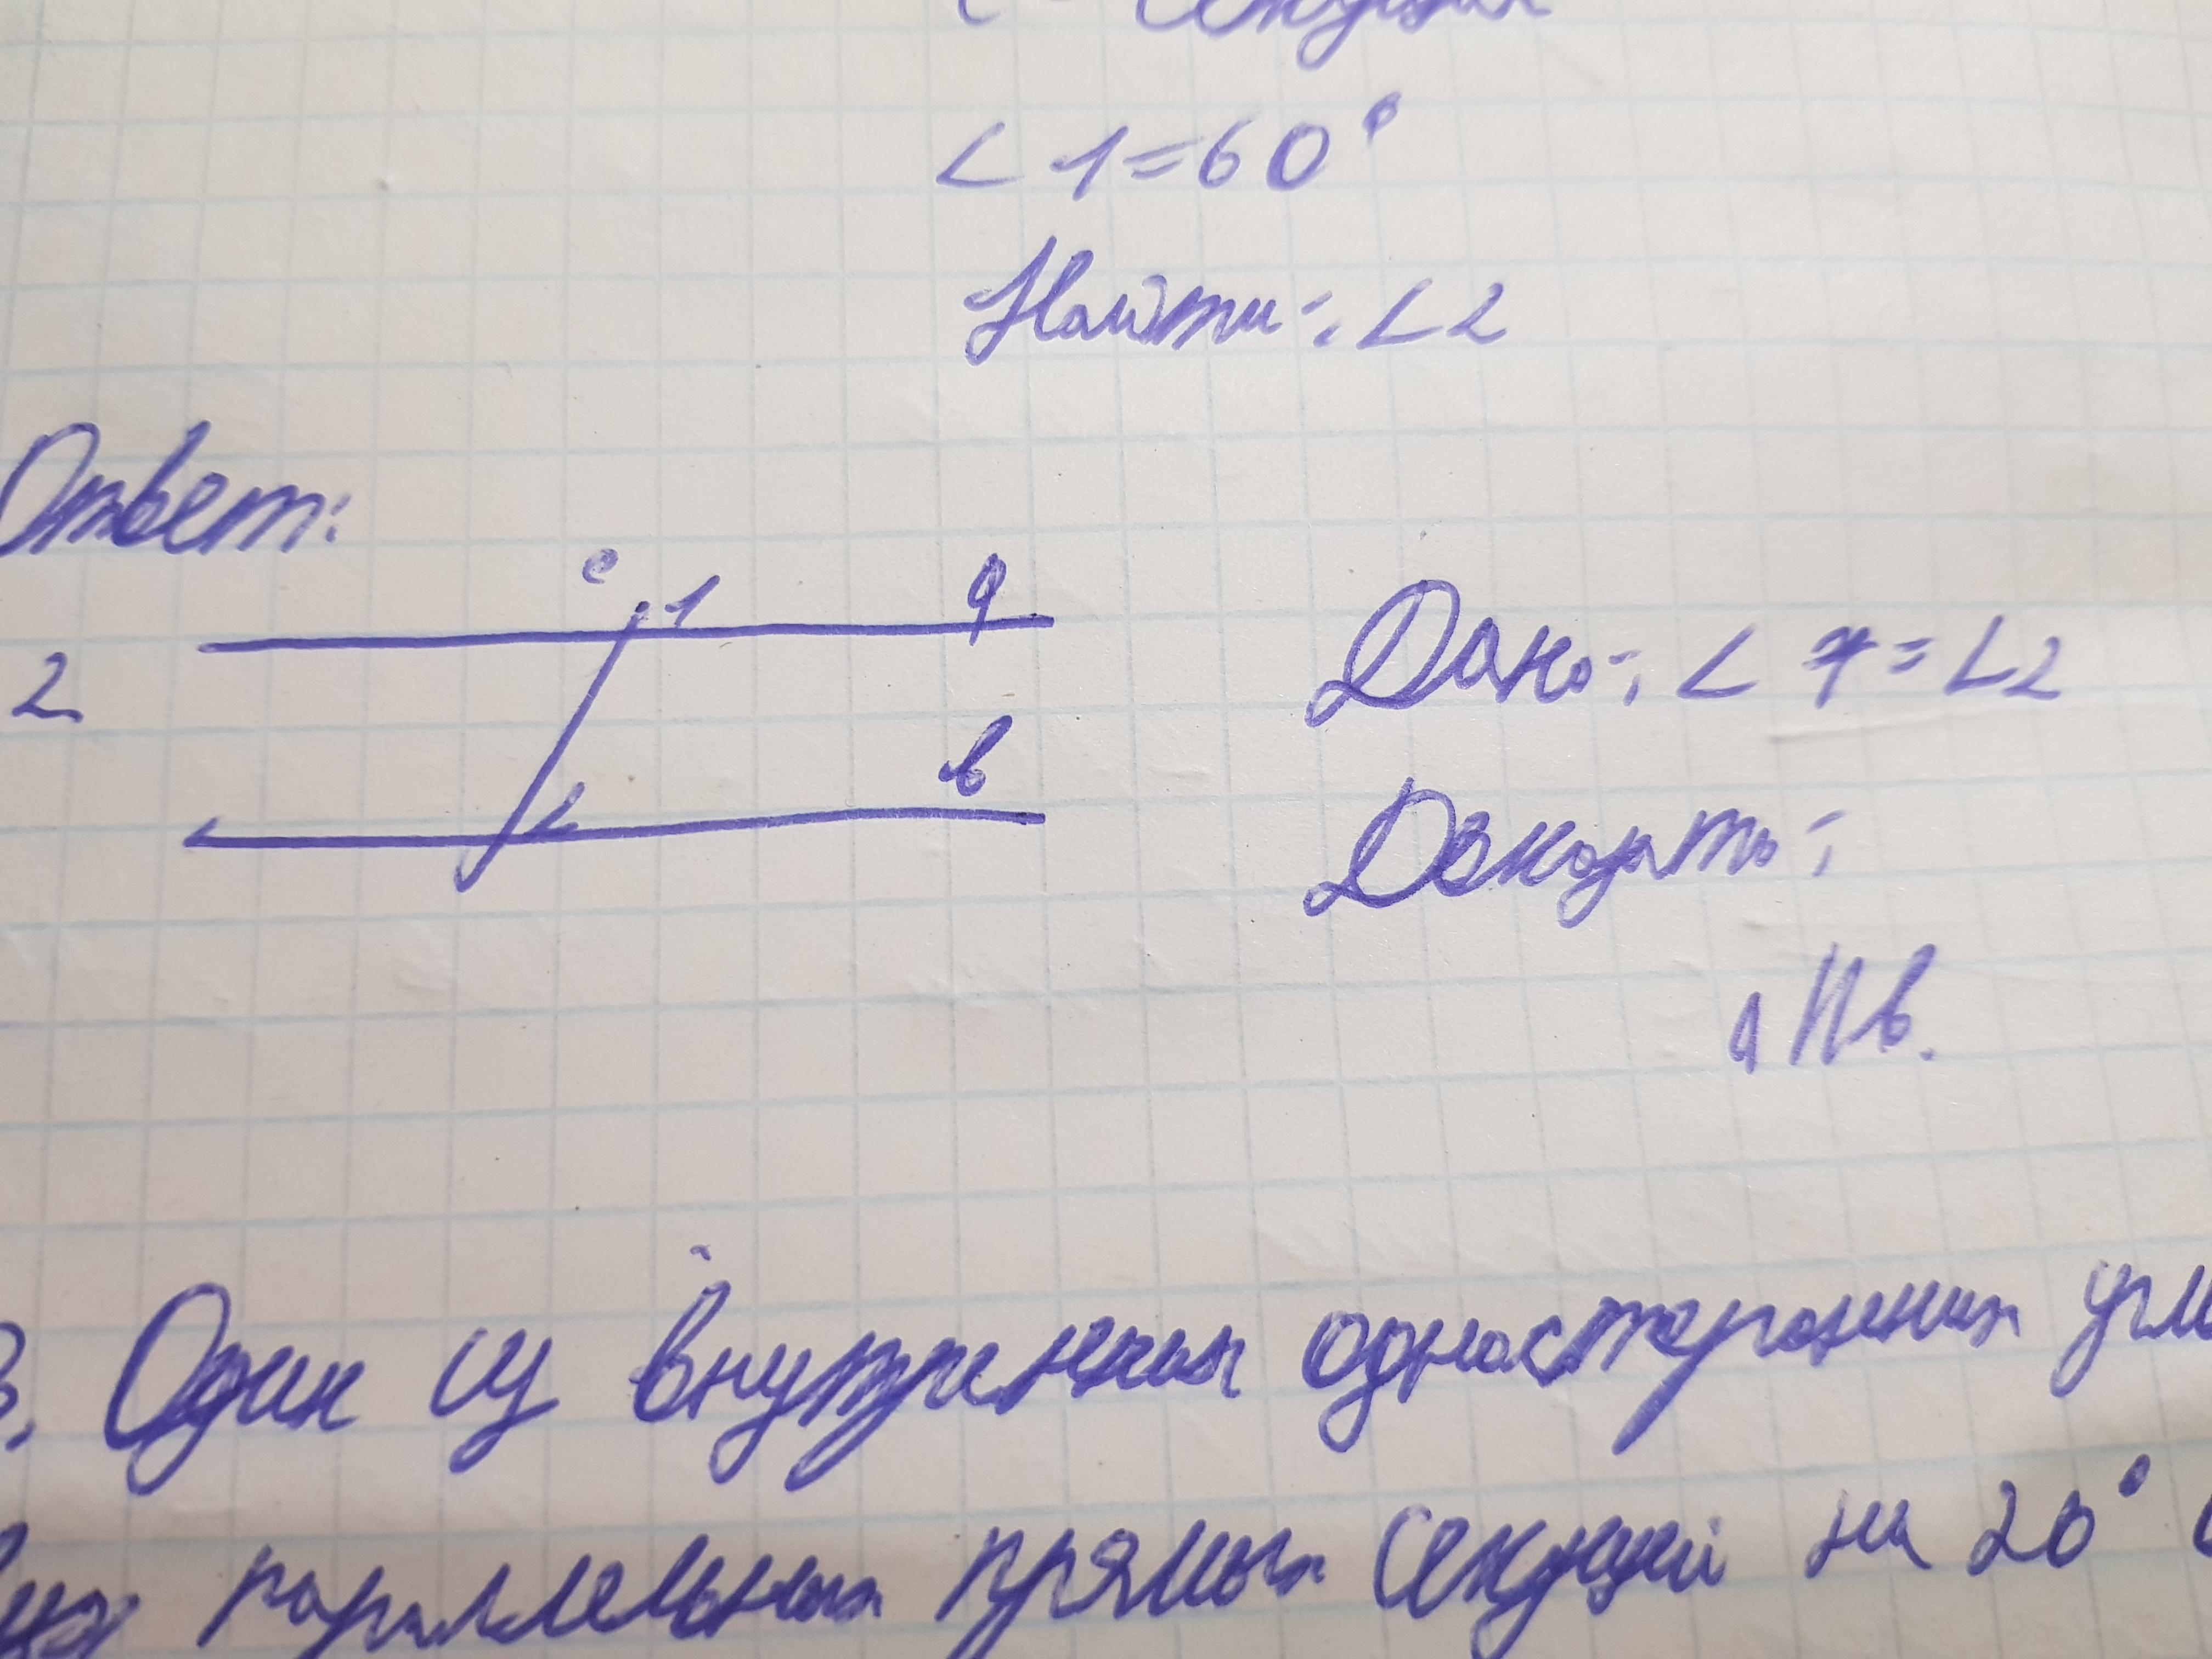 с - секущая
∠1=60°
Найти: ∠2
Ответ:
2
c 1 a
b
2
Дано: ∠1=∠2
Доказать:
a||b.
3. Один из внутренних односторонних угл
двух параллельных прямых секущей на 20°